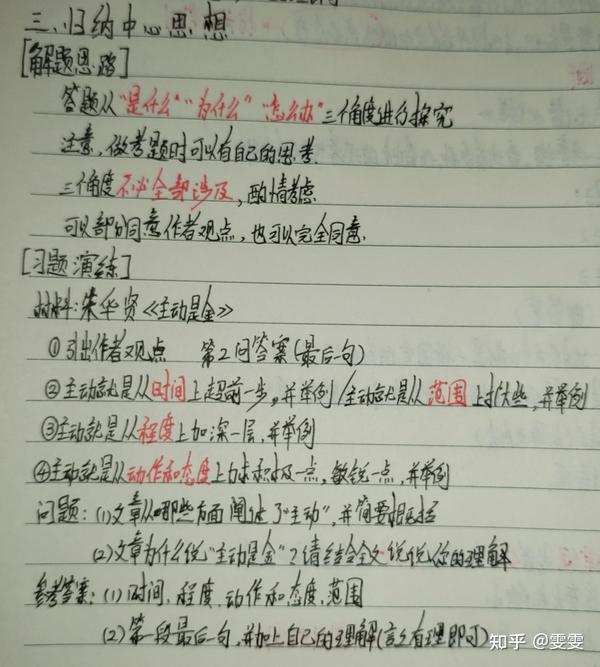 三、归纳中心思想
[解题思路]
答题从"是什么""为什么""怎么办"三个角度进行探究
注意,做考题时可以有自己的思考.
三个角度不必全部涉及,酌情考虑
可以部分同意作者观点,也可以完全同意.
[习题演练]
材料:朱华贤《主动是金》
①引出作者观点 第2问答案(最后句)
②主动就是从时间上超前一步,并举例/主动就是从范围上扩大些,并举例
③主动就是从程度上加深一层,并举例
④主动就是从动作和态度上力求积极一点,敏锐一点,并举例
问题:(1)文章从哪些方面阐述了"主动",并简要概括
(2)文章为什么说"主动是金"?请结合全文说说你的理解
参考答案:(1)时间、程度、动作和态度、范围
(2)第一段最后一句,并加上自己的理解(言之有理即可)
知乎 @雯雯